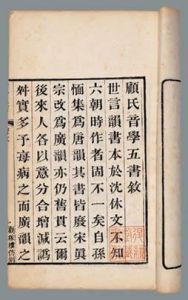 顧氏音學五書敘
世言韻書本於沈休文不知
六朝時作者固不一矣自孫
愐集為唐韻其書皆廢宋眞
宗改為廣韻亦仍舊貫云爾
後來人各以意分合增減譌
舛實多予病之而廣韻之